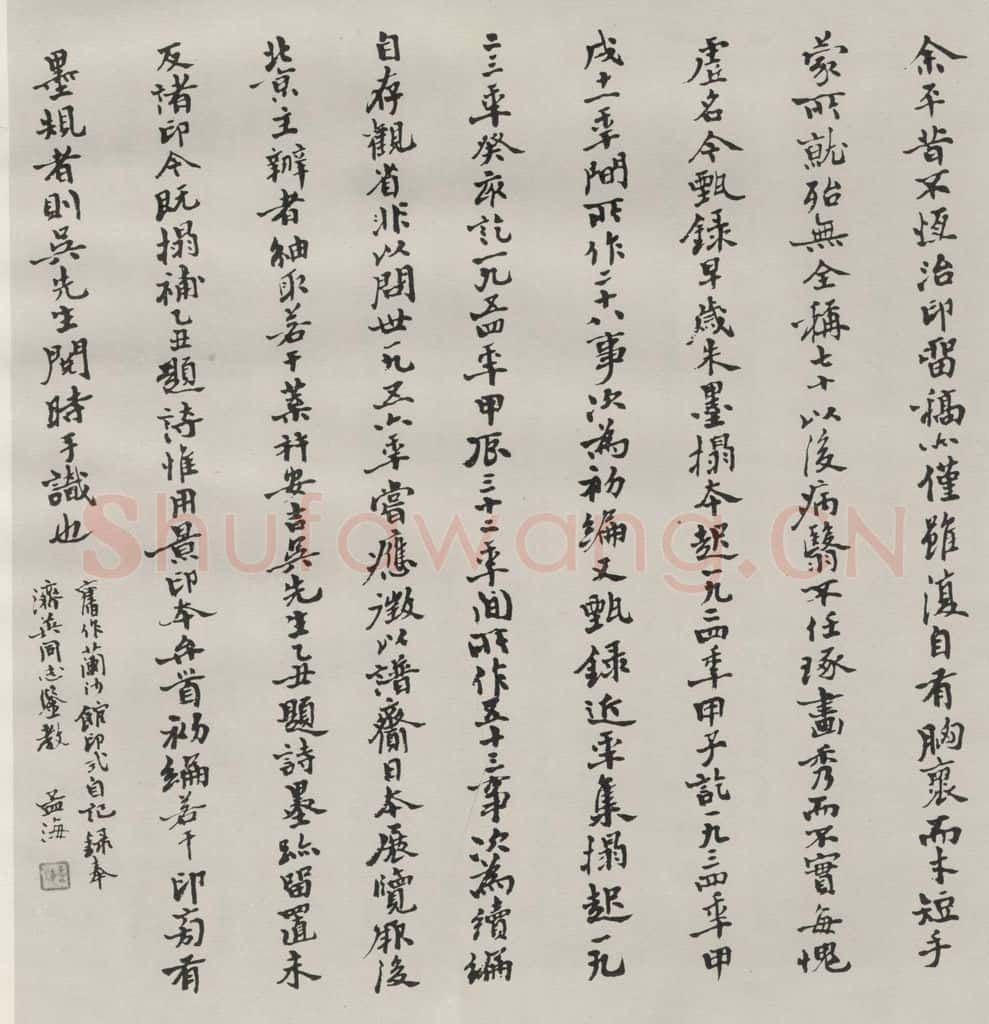 余平昔不恆治印留稿亦僅雖復自有胸裏而才短手
蒙所就殆無全稱七十以後病翳不任琢畫秀而不實每愧
虛名今甄錄早歲朱墨搨本起一九二四年甲子訖一九三四年甲
戌十一年間所作二十八事次為初編又甄錄近年集搨起一九
二三年癸亥訖一九五四年甲辰三十二年間所作五十三事次為續編
自存觀省非以問世一九五六年嘗應徵以譜齎日本展覽厥後
北京主辦者紬取若干葉并安吉吳先生乙丑題詩墨跡留置未
反諸印今既搨補乙丑題詩惟用景印本弁首初編若干印旁有
墨規者則吳先生閱時手識也
舊作蘭沙館印式自記錄奉
濟英同志鑒教 孟海
Shufawang.CN